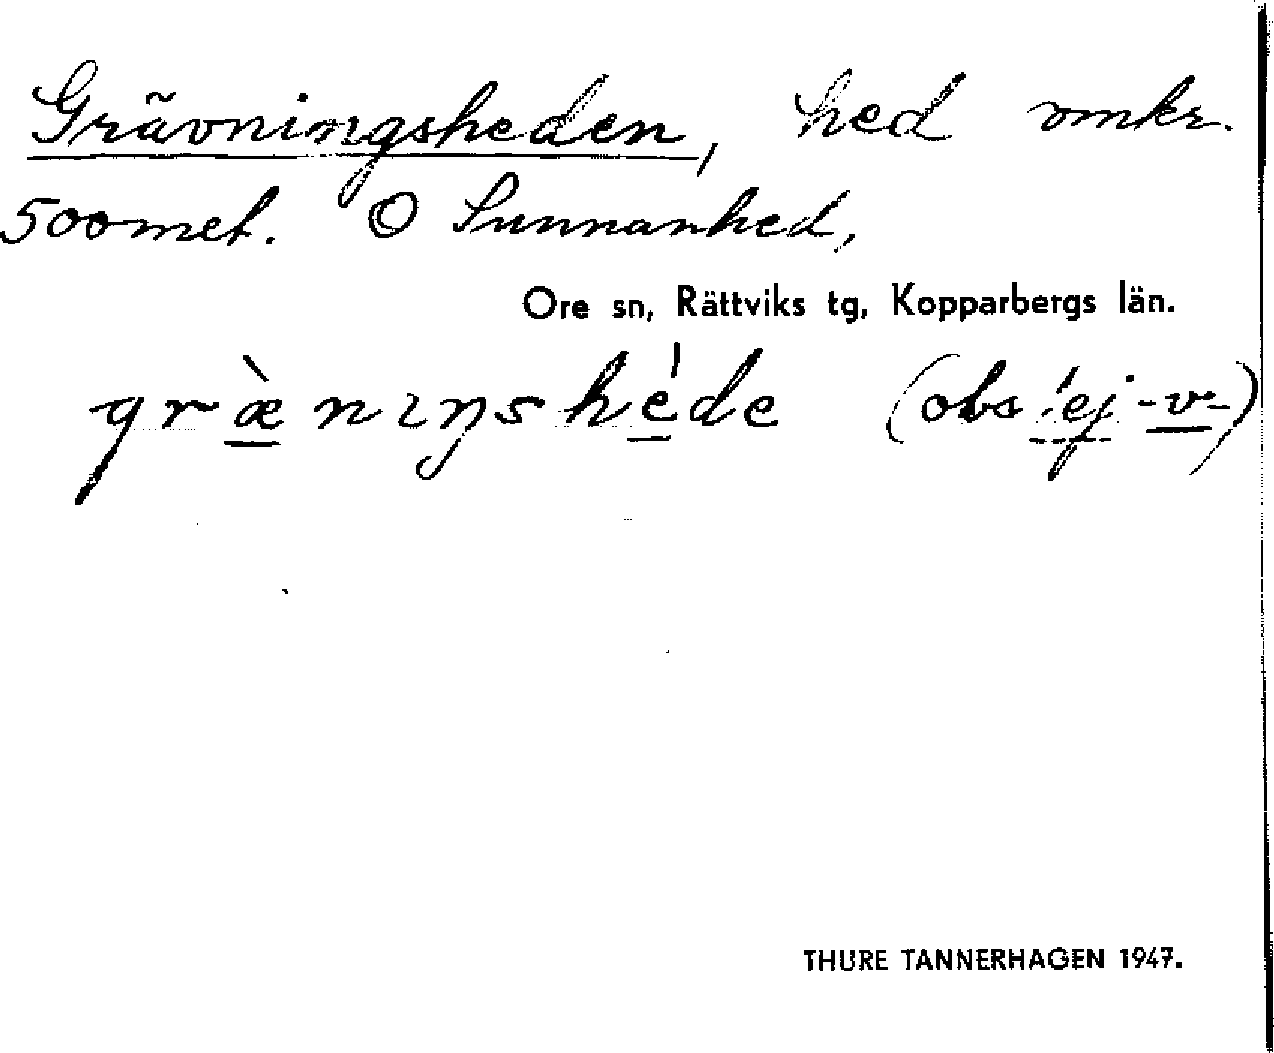 Grävningsheden, hed omkr.
500 met. O Sunnanhed,
Ore sn, Rättviks tg, Kopparbergs län.
græ̀nɪŋshe̍de (obs! ej -v-)
THURE TANNERHAGEN 1947.